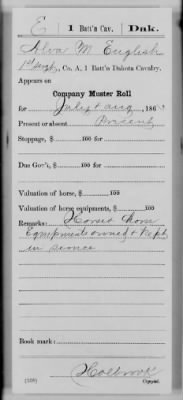 E | 1 Batt'n Cav. | Dak.
Alva M English
1st Sergt, Co. A, 1 Batt'n Dakota Cavalry.
Appears on
Company Muster Roll
for July & Aug, 186
Present or absent Present
Stoppage, $ 100 for
Due Gov't, $ 100 for
Valuation of horse, $ 100
Valuation of horse equipments, $ 100
Remarks: Horse & horse
Equipments owned & kept
in service
Book mark:
Holbrook
(358) Copyist.